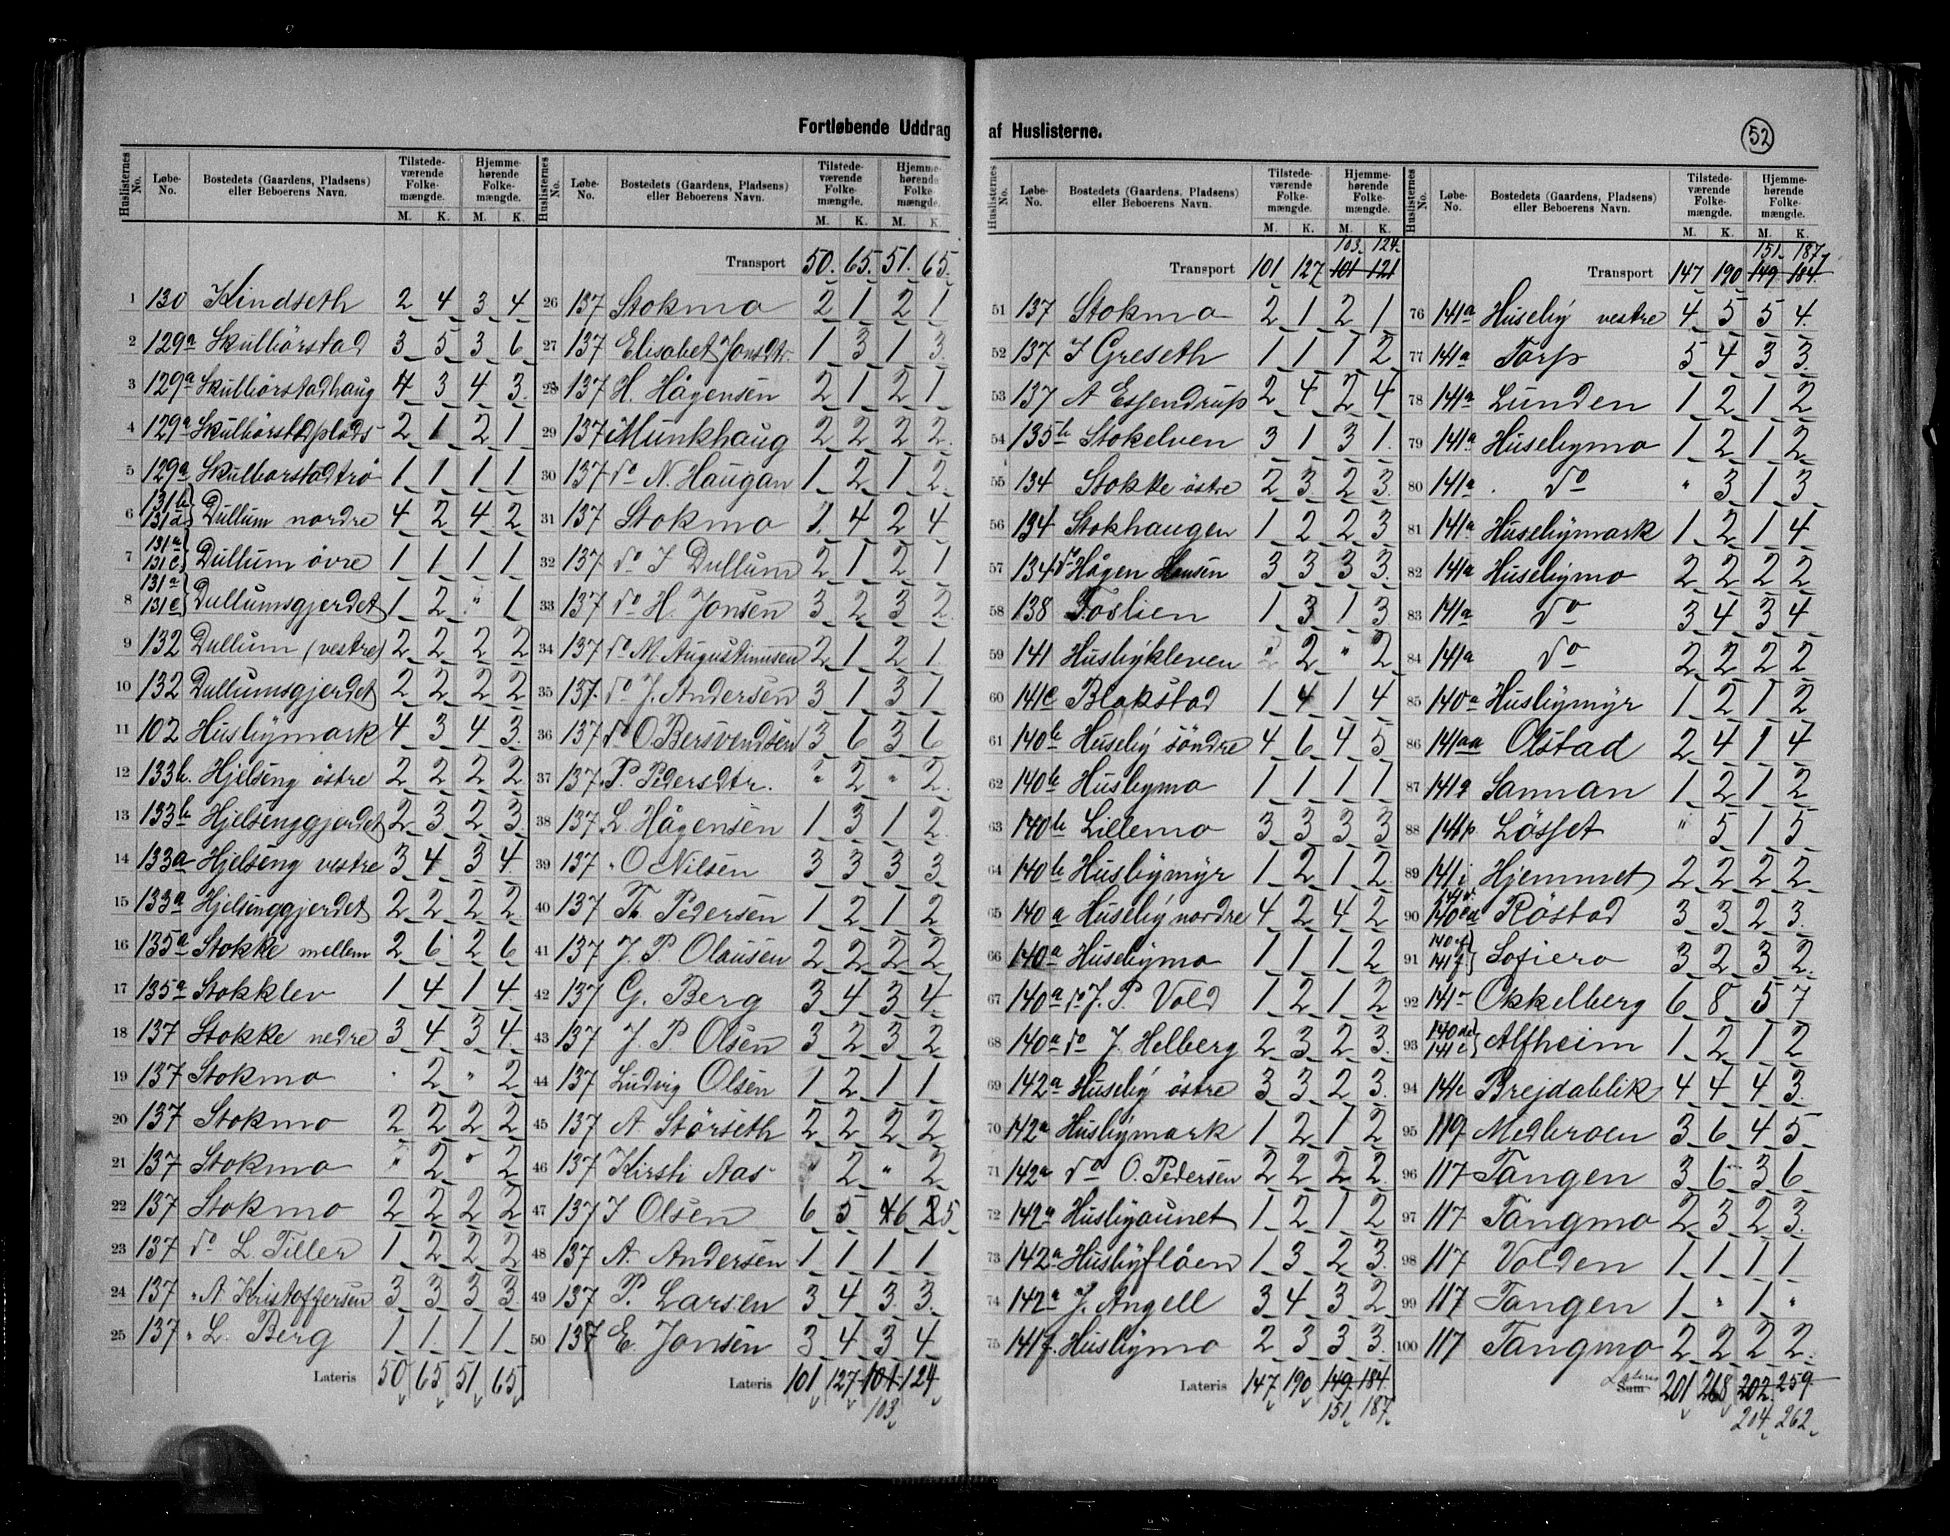 Fortløbende Uddrag af Huslisterne.
52
Huslisternes No. | Løbe-No. | Bostedets (Gaardens, Pladsens) eller Beboerens Navn. | Tilstedeværende Folkemængde. M. K. | Hjemmehørende Folkemængde. M. K.
1 130 Kindseth 2 4 3 4
2 129a Skulbörstad 3 5 3 6
3 129a Skulbörstadhaug 4 3 4 3
4 129a Skulbörstadplads 2 1 2 1
5 129a Skulborstadtrö 1 1 1 1
6 131b 131d } Dullum nordre 4 2 4 2
7 131a 131c } Dullum övre 1 1 1 1
8 131a 131c } Dullumsgjerdet 1 2 " 1
9 132 Dullum (vestre) 2 2 2 2
10 132 Dullumsgjerdet 2 2 2 2
11 102 Husbymark 4 3 4 3
12 133b. Hjelseng östre 2 2 2 2
13 133b Hjelsenggjerdet 2 3 2 3
14 133a Hjelseng vestre 3 4 3 4
15 133a Hjelsenggjerdet 2 2 2 2
16 135a Stokke mellem 2 6 2 6
17 135a Stokklev 1 4 1 4
18 137 Stokke nedre 3 4 3 4
19 137 Stokmo " 2 " 2
20 137 Stokmo 2 2 2 2
21 137 Stokmo " 2 " 2
22 137 Stokmo 2 2 2 2
23 137 do L. Tiller 1 2 2 2
24 137 " A Kristoffersen 3 3 3 3
25 137 " L. Berg 1 1 1 1
Lateris 50 65 51 65
Huslisternes No. | Løbe-No. | Bostedets (Gaardens, Pladsens) eller Beboerens Navn. | Tilstedeværende Folkemængde. M. K. | Hjemmehørende Folkemængde. M. K.
Transport 50. 65. 51. 65.
26 137 Stokmo 2 1 2 1
27 137 Elisabet Jonsdtr. 1 3 1 3
28 137 H. Hågensen 2 1 2 1
29 137 Munkhaug 2 2 2 2
30 137 do N. Haugan 1 2 1 2
31 137 Stokmo 1 4 2 4
32 137 do J Dullum 2 1 2 1
33 137 do H. Jonsen 3 2 3 2
34 137 do M. Augustinusen 2 1 2 1
35 137. do J. Andersen 3 1 3 1
36 137 do O. Bersvendsen 3 6 3 6
37 137. P. Pedersdtr. " 2 " 2
38 137 L. Hågensen 1 3 1 2
39 137 " O Nilsen 3 3 3 3
40 137 Th. Pedersen 1 2 1 2
41 137 J. P. Olausen 2 2 2 2
42 137 G. Berg 3 4 3 4
43 137 J. P. Olsen 3 2 3 2
44 137 Ludvig Olsen 1 2 1 1
45 137 A Störseth 2 2 2 2
46 137 Kirsti Aas " 2 " 2
47 137 J Olsen 6 5 6 5
48 137 A. Andersen 1 1 1 1
49 137 P. Larsen 3 4 3 3
50 137 E. Jonsen 3 4 3 4
Lateris 101 127 101 124
103
Huslisternes No. | Løbe-No. | Bostedets (Gaardens, Pladsens) eller Beboerens Navn. | Tilstedeværende Folkemængde. M. K. | Hjemmehørende Folkemængde. M. K.
103 124
Transport 101 127 101 121
51 137 Stokmo 2 1 2 1
52 137 J Greseth 1 1 1 2
53 137 A Essendrup 2 4 2 4
54 135b Stokelven 3 1 3 1
55 134 Stokke östre 2 3 2 3
56 134 Stokhaugen 1 2 2 3
57 134 do Hågen Hansen 3 3 3 3
58 138 Foslien 1 3 1 3
59 141 Husbykleven " 2 " 2
60 141c Blakstad 1 4 1 4
61 140b Huseby söndre 4 6 4 5
62 140b Husbymo 1 1 1 1
63 140b Lillemo 3 3 3 3
64 140b Husbymyr 1 2 1 2
65 140a Huseby nordre 4 2 4 2
66 140a Husebymo 1 1 1 2
67 140a do J. P. Vold 1 2 1 2
68 140a do J. Helberg 2 3 2 3
69 142a Huseby östre 3 3 2 3
70 142a Husbymark 1 2 1 2
71 142a do O. Pedersen 2 2 2 2
72 142a Husbyaunet 1 2 1 2
73 142a Husbyflöen 1 3 2 3
74 142a J. Angell 3 4 3 2
75 141f. Husbymo 2 3 3 3
Lateris 147 190 149 184
151 187
Huslisternes No. | Løbe-No. | Bostedets (Gaardens, Pladsens) eller Beboerens Navn. | Tilstedeværende Folkemængde. M. K. | Hjemmehørende Folkemængde. M. K.
151 187
Transport 147 190 149 184
76 141a Huseby vestre 4 5 5 4
77 141a Torp 5 4 3 3
78 141a Lunden 1 2 1 2
79 141a Husebymo 1 2 1 2
80 141a do " 3 1 3
81 141a Husebymark 1 2 1 4
82 141a Husebymo 2 2 2 2
83 141a do 3 4 3 4
84 141a do 2 2 2 2
85 140a Husbymyr 1 2 1 2
86 141aa Olstad 2 4 1 4
87 141q Sannan 1 2 1 2
88 141p Lösset " 5 1 5
89 141i Hjemmet 2 2 2 2
90 Röstad 3 3 2 3
91 140f 141f } Sofiero 3 2 3 2
92 141r Okkelberg 6 8 5 7
93 Alfheim 1 2 1 2
94 141c Brejdablik 4 4 4 3
95 119 Medbroen 3 6 4 5
96 117 Tangen 3 6 3 6
97 117 Tangmo 2 3 2 3
98 117 Volden 1 1 1 1
99 117 Tangen 1 " 1 "
100 117 Tangmo 2 2 2 2
Lateris Sum 201 268 202 259
204 262